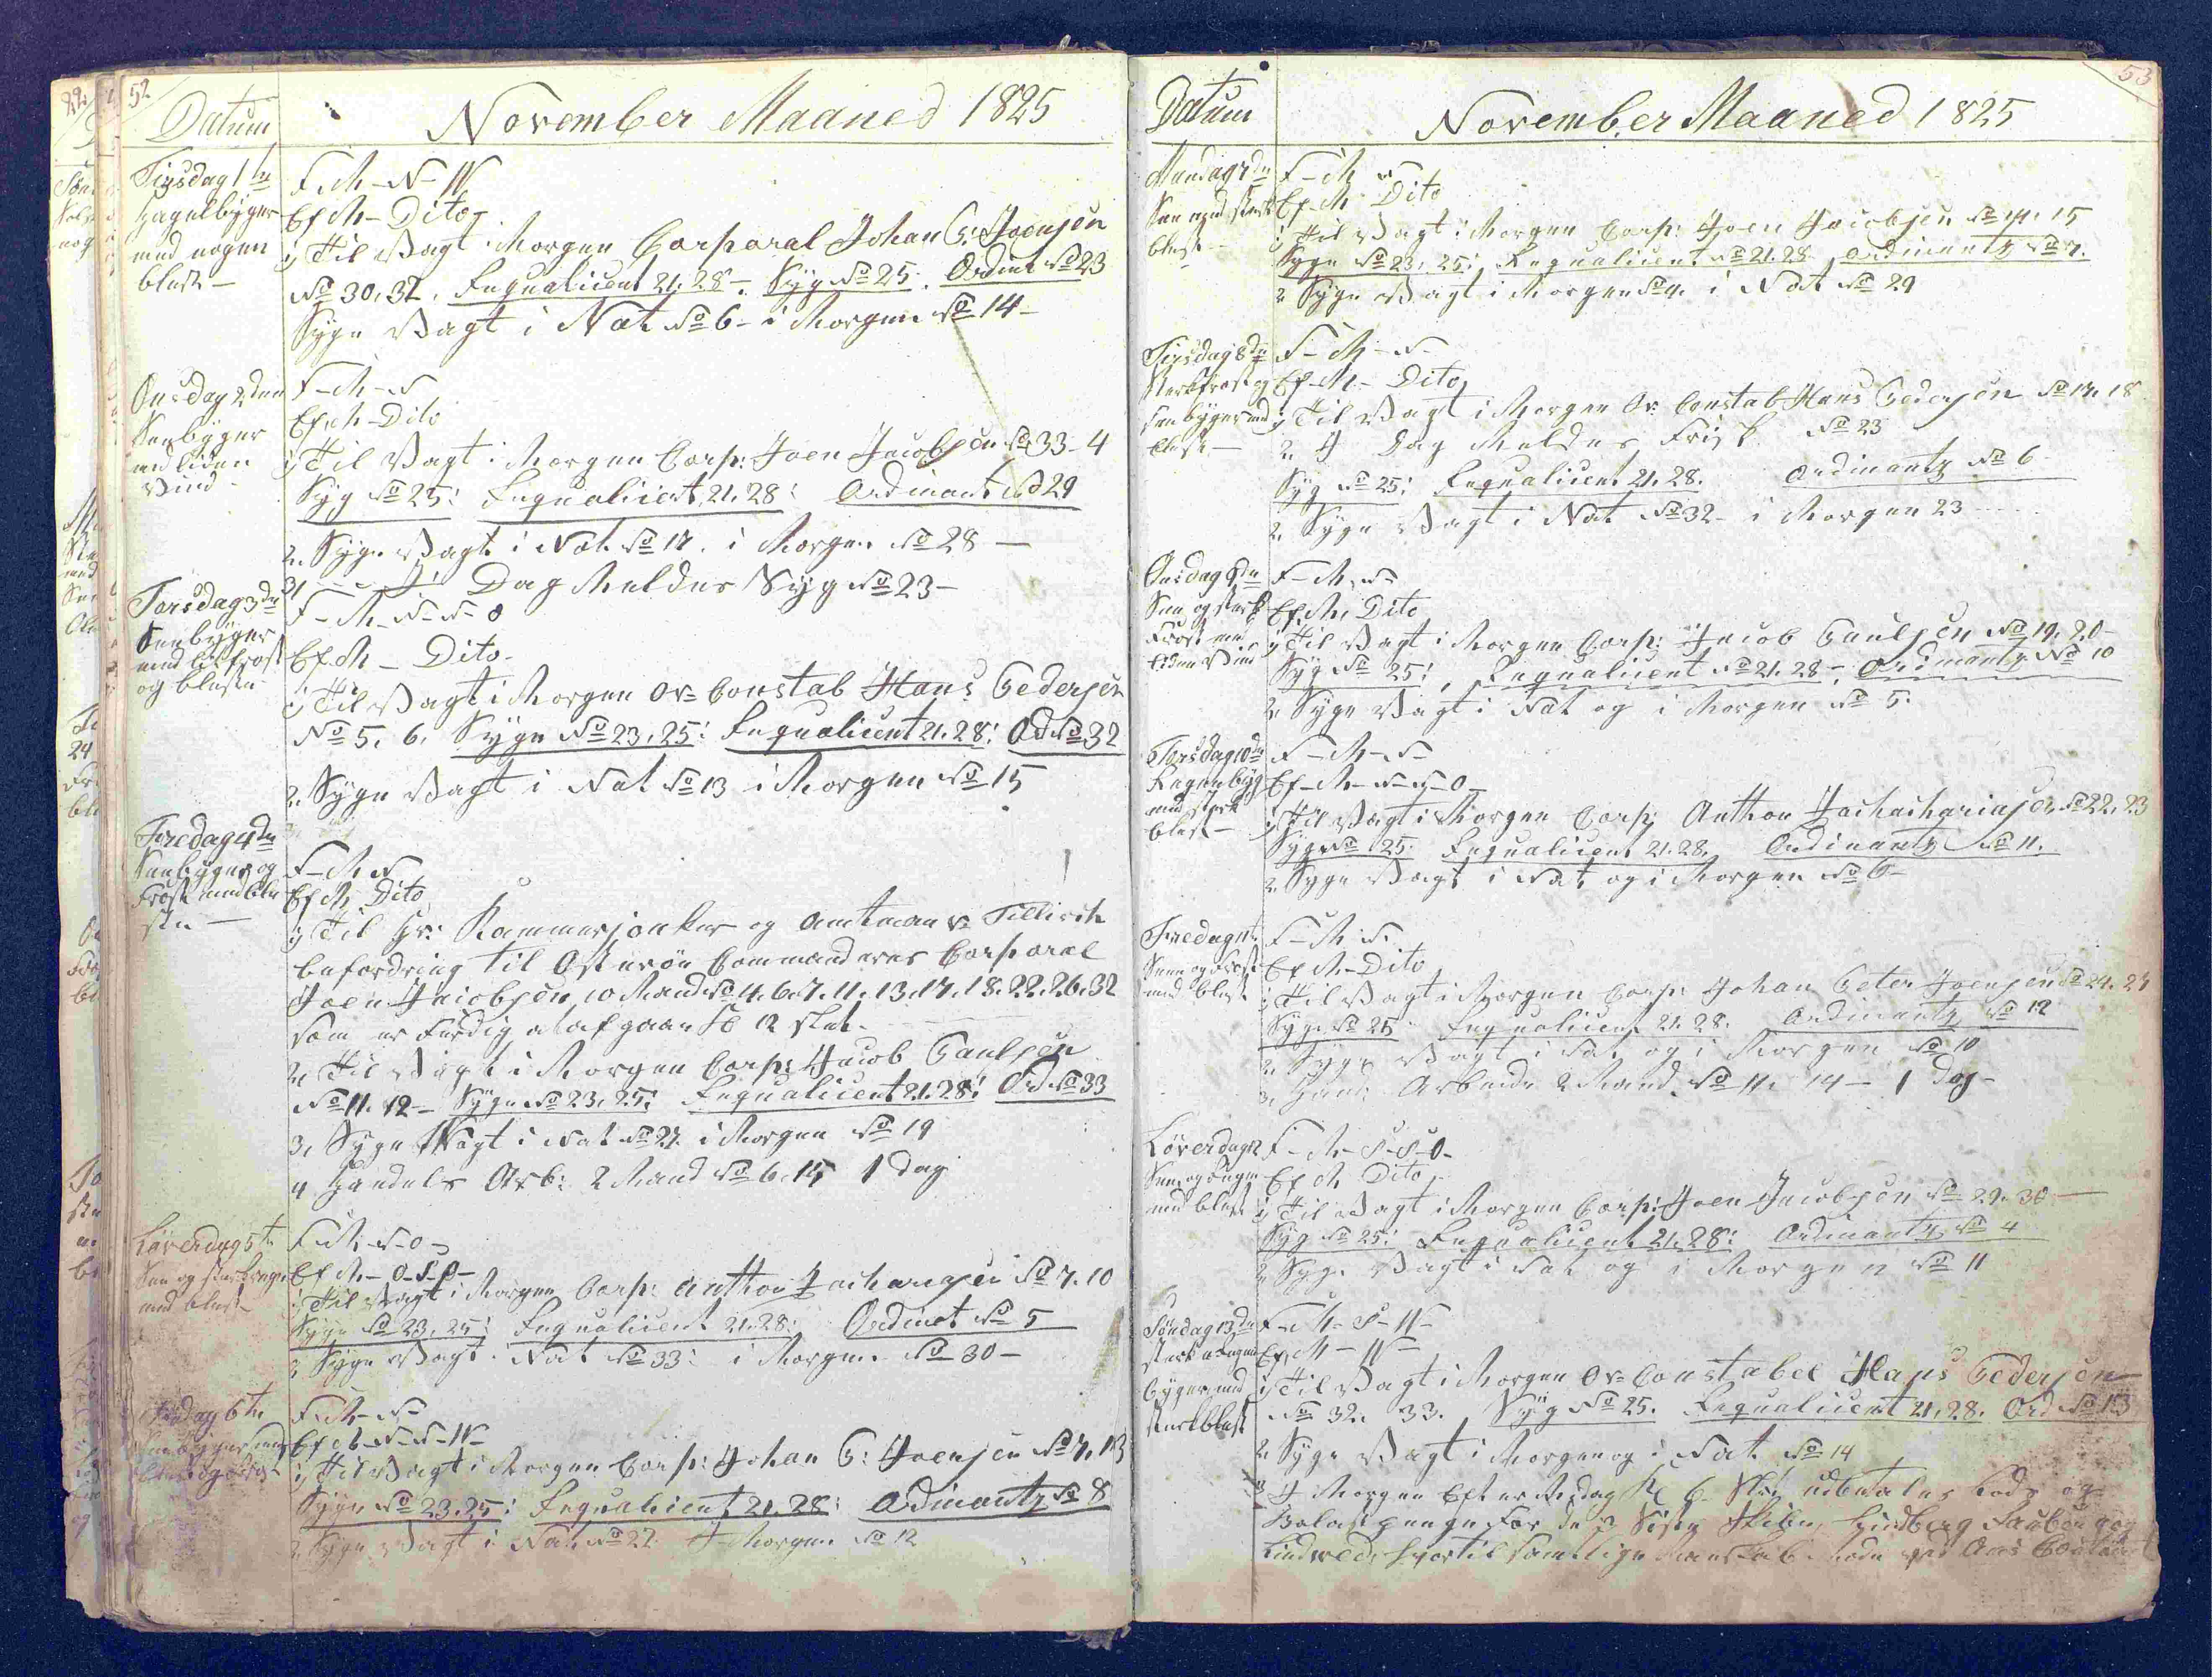 52
Datum
November Maaned 1825
Tirsdag 1te
Hagelbyger
med nogen
blest -
F. M - N - W
Ef M - Dito
1, Til Vagt i Morgen Corporal Johan P: Joensen
No 30, 32, Inqualicent 21. 28 -. Syg No 25. Ordina No 23
Syge Vagt i Nat No 6 - i Morgen No 14 -
Onsdag 2den
Snebyger
med liden
Vind -
F - M - N
Ef. M - Dito
1, Til Vagt i Morgen Corp: Joen Jacobsen No 33 - 4
Syg No 25: Inqualicent 21. 28: Ordinants No 29
2, Syge Vagt i Nat No 17. i Morgen No 28 -
3, I Dag Meldes Syg No 23 -
Torsdag 3de
Snebyger
med lit frost
og blesten
F - M - N - N - O
Ef. M - Dito -
1, Til Vagt i Morgen Ov= Constab Hans Pedersen
No 5, 6, Syge No 23, 25: Inqualicent 21. 28: Ord No 32
2, Syge Vagt i Nat No 13 i Morgen No 15
Fredag 4de
Snebyger og
Frost med ble
sten -
F - M N
Ef M Dito
1, Til Hr: Kammerjonker og Amtman v: Tillisch
befordring til Østerøen Commanderes Corporal
Joen Jacobsen, 10 Mand No 4. 6. 7. 11. 13. 17. 18. 22. 26. 32
som er Færdig at afgaae Kl 12 slet -
2, Til Vagt i Morgen Corp: Jacob Paulsen
No 11. 12 - Syge No 23, 25: Inqualicent 21. 28: Ord No 33
3, Syge Vagt i Nat No 27. i Morgen No 19
4 Handels Arb: 2 Mand No 6. 15 1 Dag
Løverdag 5te
Sne og
med blest -
F. M. N - O -
Ef M - O - S - O -
1, Til Vagt i Morgen Corp: Anthon Zachariasen No 7. 10
Syge No 23, 25: Inqualicent 21. 28: Ordinat No 5
2, Syge Vagt i Nat No 33: i Morgen No 30 -
Søndag 6te
Snebyger med
F. M - N -
Ef M - N - N - W -
1, Til Vagt i Morgen Corp: Johan P: Joensen No 7, 13
Syge No 23. 25: Inqualicent 21. 28: Ordinantz No 8
2, Syge Vagt i Nat No 22 I Morgen No 12
53
Datum
November Maaned 1825
Mandag 7de
Sne med sterk
blest -
F - M W
Ef. M Dito
1, Til Vagt i Morgen Corp: Joen Jacobsen No 14. 15
Syge No 23, 25: Inqualicent No 21. 28 Ordinantz No 7.
2 Syge Vagt i Morgen No 4. i Nat No 29
Tirsdag 8de
Sterk frost og
snebyger med
blest -
F - M - N -
Ef - M - Dito
1, Til Vagt i Morgen Ov: Constab Hans Pedersen No 17. 18
2, I Dag Meldes Frisk No 23
Syg No 25: Inqualicent 21. 28. Ordinantz No 6 -
2, Syge Vagt i Nat No 32 - i Morgen 23
Onsdag 9de
Sne og sterk
Frost med
liden Vind
F - M. N -
Ef. M. Dito
1, Til Vagt i Morgen Corp: Jacob Paulsen No 19. 20 -
Syg No 25: Inqualicent No 21. 28 -. Ordinantz No 10
2, Syge Vagt i Nat og i Morgen No 5.
Torsdag 10de
Regenbyg
med sterk
blest -
F - M - N -
Ef - M - N - N - O -
1, Til Vagt i Morgen Corp: Anthon Zachachariasen No 22, 23
Syge No 25. Inqualicent 21. 28. Ordinantz No 11.
2, Syge Vagt i Nat og i Morgen No 6 -
Fredag 11te
Snee og Frost
med blest
F - M. N.
Ef M - Dito
1, Til Vagt i Morgen Corp: Johan Peter Joensen No 24. 27
Syge No 25: Inqualicent 21. 28. Ordinantz No 12
2, Syge Vagt i Nat og i Morgen No 10
3, Hand: Arbeide 2 Mand No 11. 14 - 1 Dag -
Løverdag 12
Sne og Regen
med blest
F - M - S - S - O -
Ef M Dito
1, Til Vagt i Morgen Corp: Joen Jacobsen No 29. 30 -
Syg No 25: Inqualicent 21. 28: Ordinantz No 4
2, Syge Vagt i Nat og i Morgen No 11
Søndag 13de
sterke Regen
byger med
sterk blest
F. M - S - W -
Ef. M - W -
1, Til Vagt i Morgen Ov= Constabel Hans Pedersen
No 32. 33. Syg No 25. Inqualicent 21, 28. Ord No 13
2, Syge Vagt i Morgen og i Nat No 14
3, I Morgen Efter Midag Kl 6 Slet udbetales Lods og
Balast penge for de 3 Skibe,
hvortil samtlige Manskab Møde